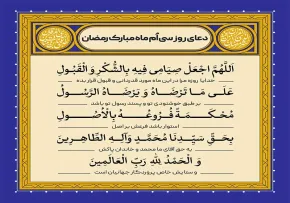 دعای روز سی‌اُم ماه مبارک رمضان
اَللّهُمَّ اجْعَلْ صِیامی فیهِ بِالشُّکْرِ وَ الْقَبولِ
خدایا روزه مرا در این ماه مورد قدردانی و قبول قرار بده
عَلی ما تَرْضاهُ وَ یَرْضاهُ الرَّسولُ
بر طبق خوشنودی تو و پسند رسول تو باشد
مُحْکَمَةً فُروعُهُ بِالْأُصولِ
استوار باشد فرعش بر اصل
بِحَقِّ سَیِّدِنا مُحَمَّدٍ وَ آلِهِ الطّاهِرینَ
به حق آقای ما محمد و خاندان پاکش
وَ الْحَمْدُ لِلّهِ رَبِّ الْعالَمینَ
و ستایش خاص پروردگار جهانیان است